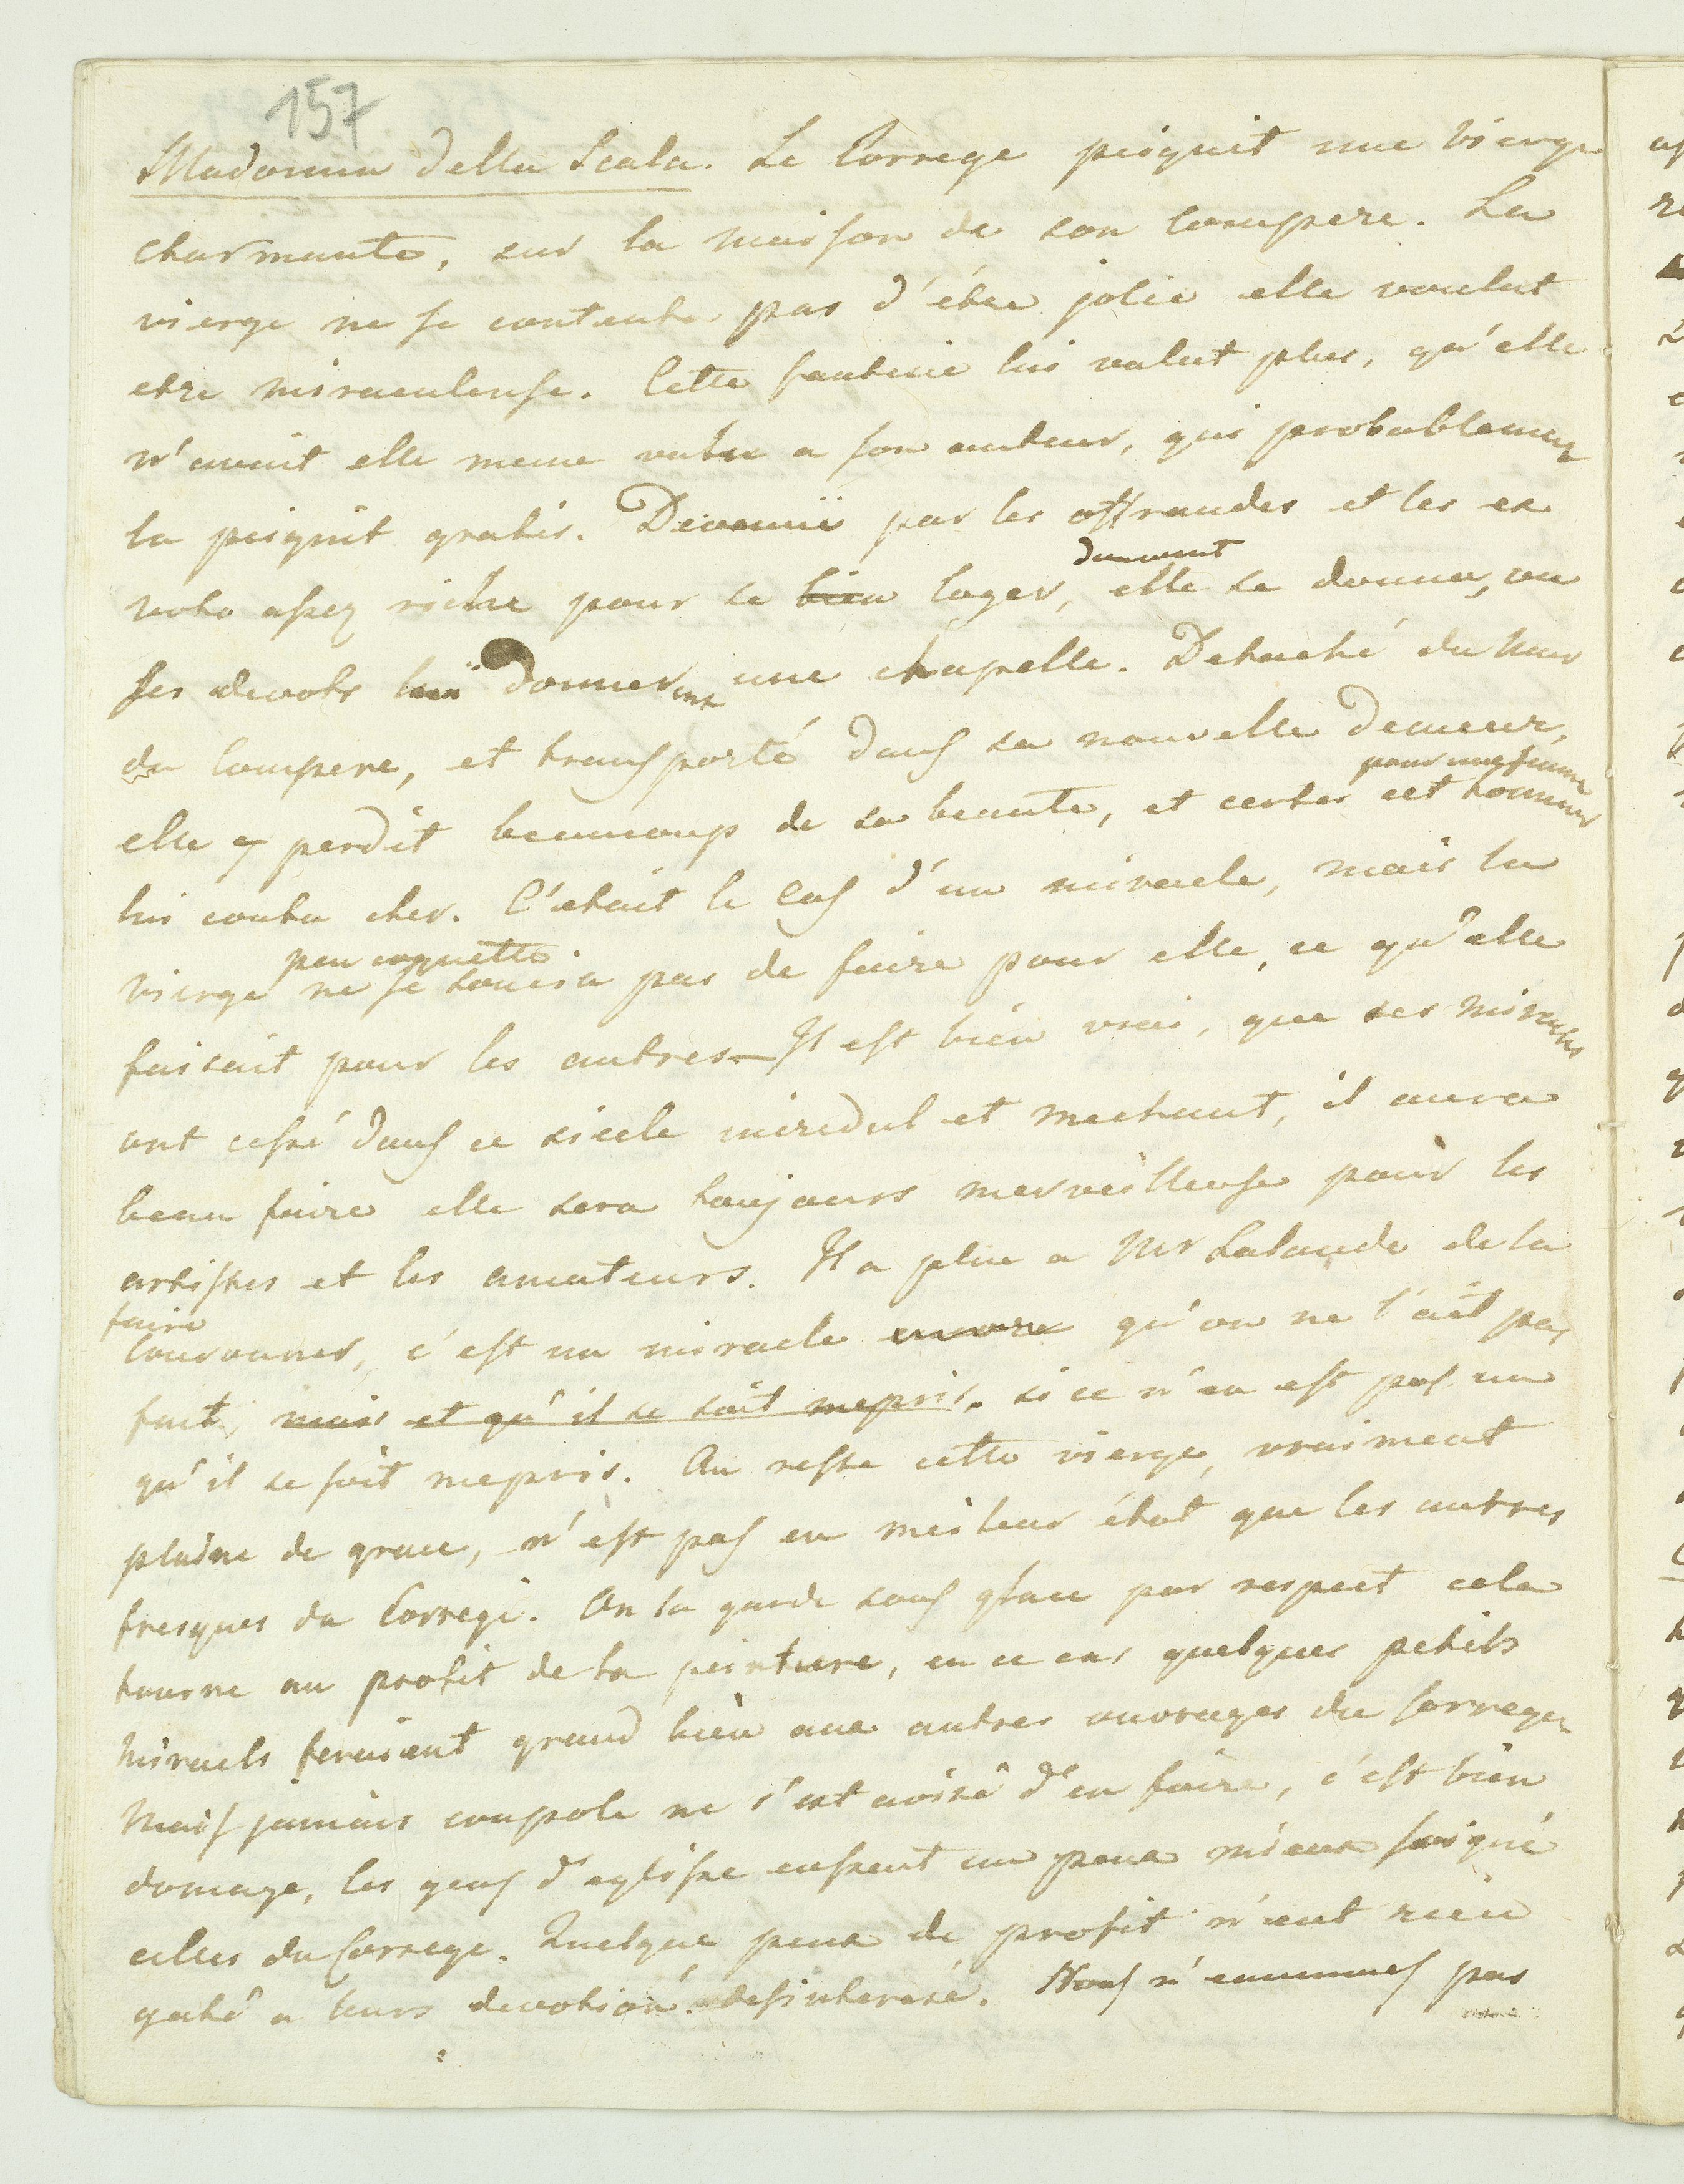 157
Madonna della Scala. Le Correge peignit une vierge
charmante, sur la maison de son compere. La
vierge ne se contenta pas d'être jolie elle voulut
etre miraculeuse. Cette fantesie lui valut plus, qu'elle
n'avoit elle meme valu a son auteur, qui probablement
la peignit gratis. Devenuë par les offrandes et les ex
voto assez riche pour se bien loger, elle se donna, ou
dumment
ses devots lui donnerent une chapelle. Detaché du mur
du compere, et transporté dans sa nouvelle demeure,
pour une femme
elle y perdit beaucoup de sa beauté, et certes cet honneur
lui couta cher. C'etait le cas d'un miracle, mais la
peu coquette
vierge ne se soucia pas de faire pour elle, ce qu'elle
faisait pour les autres — Il est bien vrai, que ses miracles
ont cessé dans ce siecle incredul et mechant, il aura
beau faire elle sera toujours merveilleuse pour les
artistes et les amateurs. Il a plu a Mr Lalande de la
faire
couronner, c'est un miracle encore qu'on ne l'ait pas
fait, mais et qu'il se soit mepris. si ce n'en est pas un
qu'il se soit mepris. Au reste cette vierge, vraiment
plaine de grace, n'est pas en meileur état que les autres
fresques du Correge. On la garde sous glace par respect cela
tourne au profit de la peinture, en ce cas quelques petits
miracls feraient grand bien aux autres ouvrages du Correge
Mais jamais coupole ne s'est avisé d'en faire, c'est bien
domage, les gens d'eglise eussent un peux mieux soigné
celles du Correge. Quelque peux de profit n'eut rien
gaté a leurs devotion desinteresé. Nous n'eummes pas